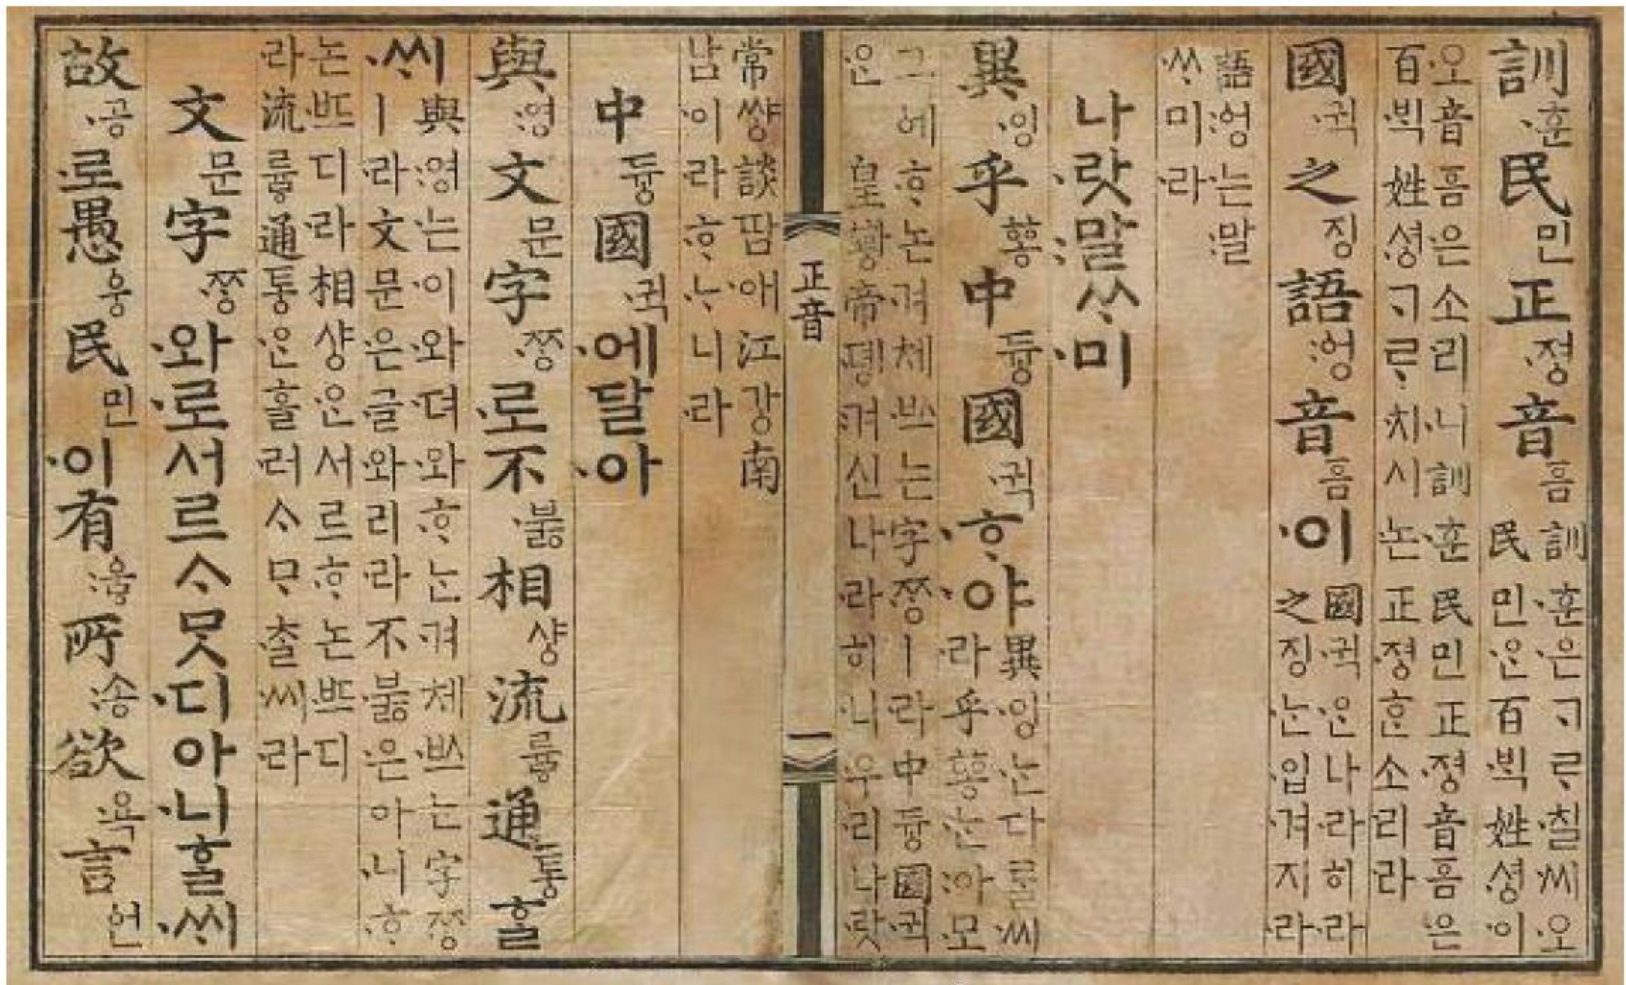 訓·훈民민正·져ᇰ音ᅙᅳᆷ 訓·훈·은ᄀᆞᄅᆞ·칠·씨오
民민·ᄋᆞᆫ百·ᄇᆡᆨ姓·셔ᇰ·이
오音ᅙᅳᆷ·은소·리·니訓·훈民민正·져ᇰ音ᅙᅳᆷ·은
百·ᄇᆡᆨ姓·셔ᇰᄀᆞᄅᆞ·치시·논正·져ᇰᄒᆞᆫ소·리·라
國·귁之징語:ᅌᅥᆼ音ᅙᅳᆷ·이 國·귁·ᄋᆞᆫ나·라히·라
之징·ᄂᆞᆫ·입·겨지·라
語:ᅌᅥᆼ·는:말
ᄊᆞ·미·라
나·랏:말ᄊᆞ·미
異·잉乎ᅘᅩᆼ中듀ᇰ國·귁·ᄒᆞ·야 異·잉·는다ᄅᆞᆯ씨
·라乎ᅘᅩᆼ·는:아:모
그ᅌᅦ·ᄒᆞ논·겨체·ᄡᅳ는字·ᄍᆞᆼㅣ·라中듀ᇰ國·귁
·ᄋᆞᆫ皇ᅘᅪᇰ帝·뎽:겨신나·라히·니우·리나·랏
正音 一
常쌰ᇰ談땀·애江가ᇰ南
남·이·라·ᄒᆞᄂᆞ·니·라
中듀ᇰ國·귁·에달·아
與:영文문字·ᄍᆞᆼ·로不·부ᇙ相샤ᇰ流류ᇢ通토ᇰᄒᆞᆯ
·ᄊᆡ 與:영·는·이·와·뎌·와·ᄒᆞ·ᄂᆞᆫ·겨체·ᄡᅳ는字·ᄍᆞᆼ
ㅣ·라文문·은·글·와리·라不·부ᇙ·은아·니·ᄒᆞ
논·ᄠᅳ디·라相샤ᇰ·ᄋᆞᆫ서르·ᄒᆞ논·ᄠᅳ디
라流류ᇢ通토ᇰ·ᄋᆞᆫ흘·러ᄉᆞᄆᆞᄎᆞᆯ·씨·라
文문字·ᄍᆞᆼ·와·로서르ᄉᆞᄆᆞᆺ·디아·니ᄒᆞᆯ·ᄊᆡ
故·공·로愚웅民민·이有:우ᇢ所:송欲·욕言언